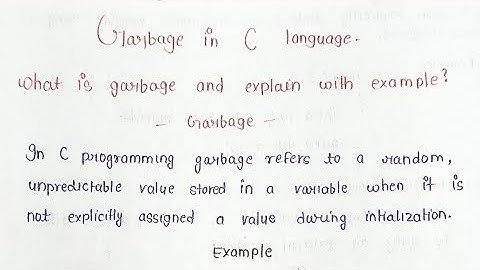 Garbage in C language.
What is garbage and explain with example?
- Garbage -
In C programming garbage refers to a random,
unpredictable value stored in a variable when it is
not explicitly assigned a value during intialization.
Example